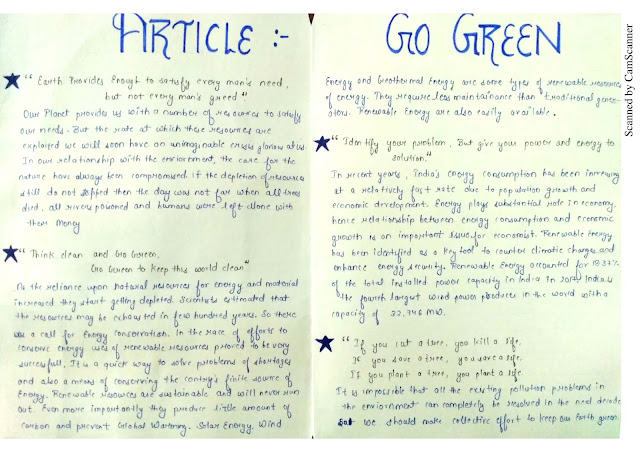 ARTICLE :-
"Earth Provides Enough to satisfy every man's need,
but not every man's greed"
Our Planet provides us with a number of resources to satisfy
our needs. But the rate at which these resources are
exploited we will soon have an unimaginable crisis glorious at us.
In our relationship with the enviorment, the care for the
nature have always been compromised. If the depletion of resources
still do not stopped then the day was not far when all trees
died, all rivers poisoned and humans were left alone with
them Money
"Think clean and Go Green,
Go Green to keep this world clean"
As the reliance upon natural resources for energy and material
increased they start getting depleted. Scientists estimated that
the resources may be exhausted in few hundred years. So there
was a call for Energy Conservation. In the race of efforts to
conserve energy uses of renewable resources proved to be very
successfull. It is a quick way to solve problems of shortages
and also a means of conserving the contry's finite source of
Energy. Renewable resources are sustainable and will never run
out. Even more importantly they produce little amount of
Carbon and prevent Global Warming. Solar Energy, Wind
GO GREEN
Energy and Geothermal Energy are some types of renewable resources
of energy. They require less maintainance than traditional gener-
ators. Renewable Energy are also easily available.
"Identify your problem, But give your power and energy to
solution"
In recent years, India's energy consumption has been increasing
at a relatively fast rate due to population growth and
economic development. Energy plays substantial role in economy,
hence relationship between energy consumption and economic
growth is an important issue for economist. Renewable Energy
has been identified as a key tool to counter climatic changes and
enhance energy security. Renewable Energy accounted for
of the total installed power capacity in India in India is
the fourth largest wind power producer in the world with a
capacity of 22,346 MW.
"If you cut a tree, you kill a life,
If you save a tree, you save a life,
If you plant a tree, you plant a life.
It is impossible that all the existing pollution problems in
the enviornment can completely be resolved in the next decade
but we should make collective effort to keep our Earth green.
Scanned by CamScanner